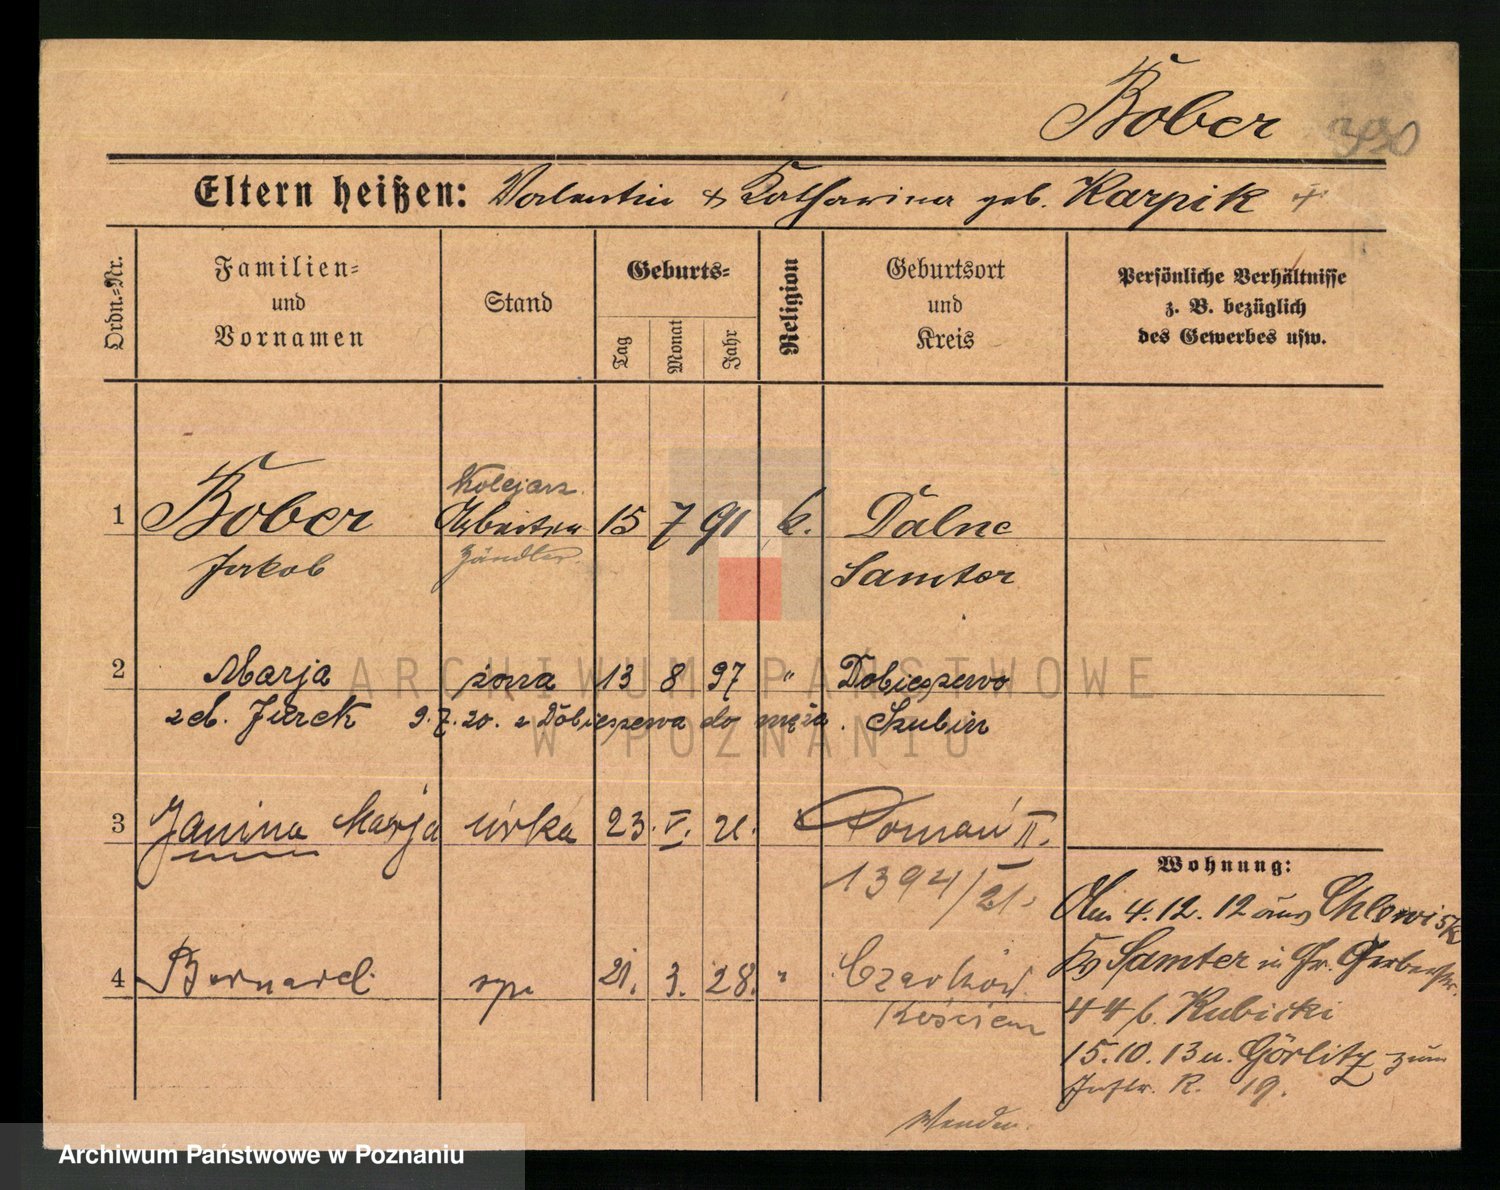 Bober 390
Eltern heißen: Valentin & Katharina geb. Karpik
Ordn.-Nr.
Familien-
und
Vornamen
Stand
Geburts-
Tag
Monat
Jahr
Religion
Geburtsort
und
Kreis
Persönliche Verhältnisse
z. B. bezüglich
des Gewerbes usw.
Kolejarz
1 Bober Arbeiter 15 7 91 k. Dalne
Jakob Händler Samter
2 Marja żona 13 8 97 " Dobieszewo
zd. Jurek 9.7.20. z Dobieszewa do męża. Szubin
3 Janina Marja córka 23. V. 21. Poznań II.
1394/21.
4 Bernard syn 21. 3. 28. " Czarków
Kościan
Wohnung:
Am 4.12.12 aus Chlewisk
Kr Samter in Gr. Gerberstr.
44 b. Kubicki
15.10.13 n. Görlitz zum
Inftr. R. 19.
Wenden.
ARCHIWUM PAŃSTWOWE
W POZNANIU
Archiwum Państwowe w Poznaniu